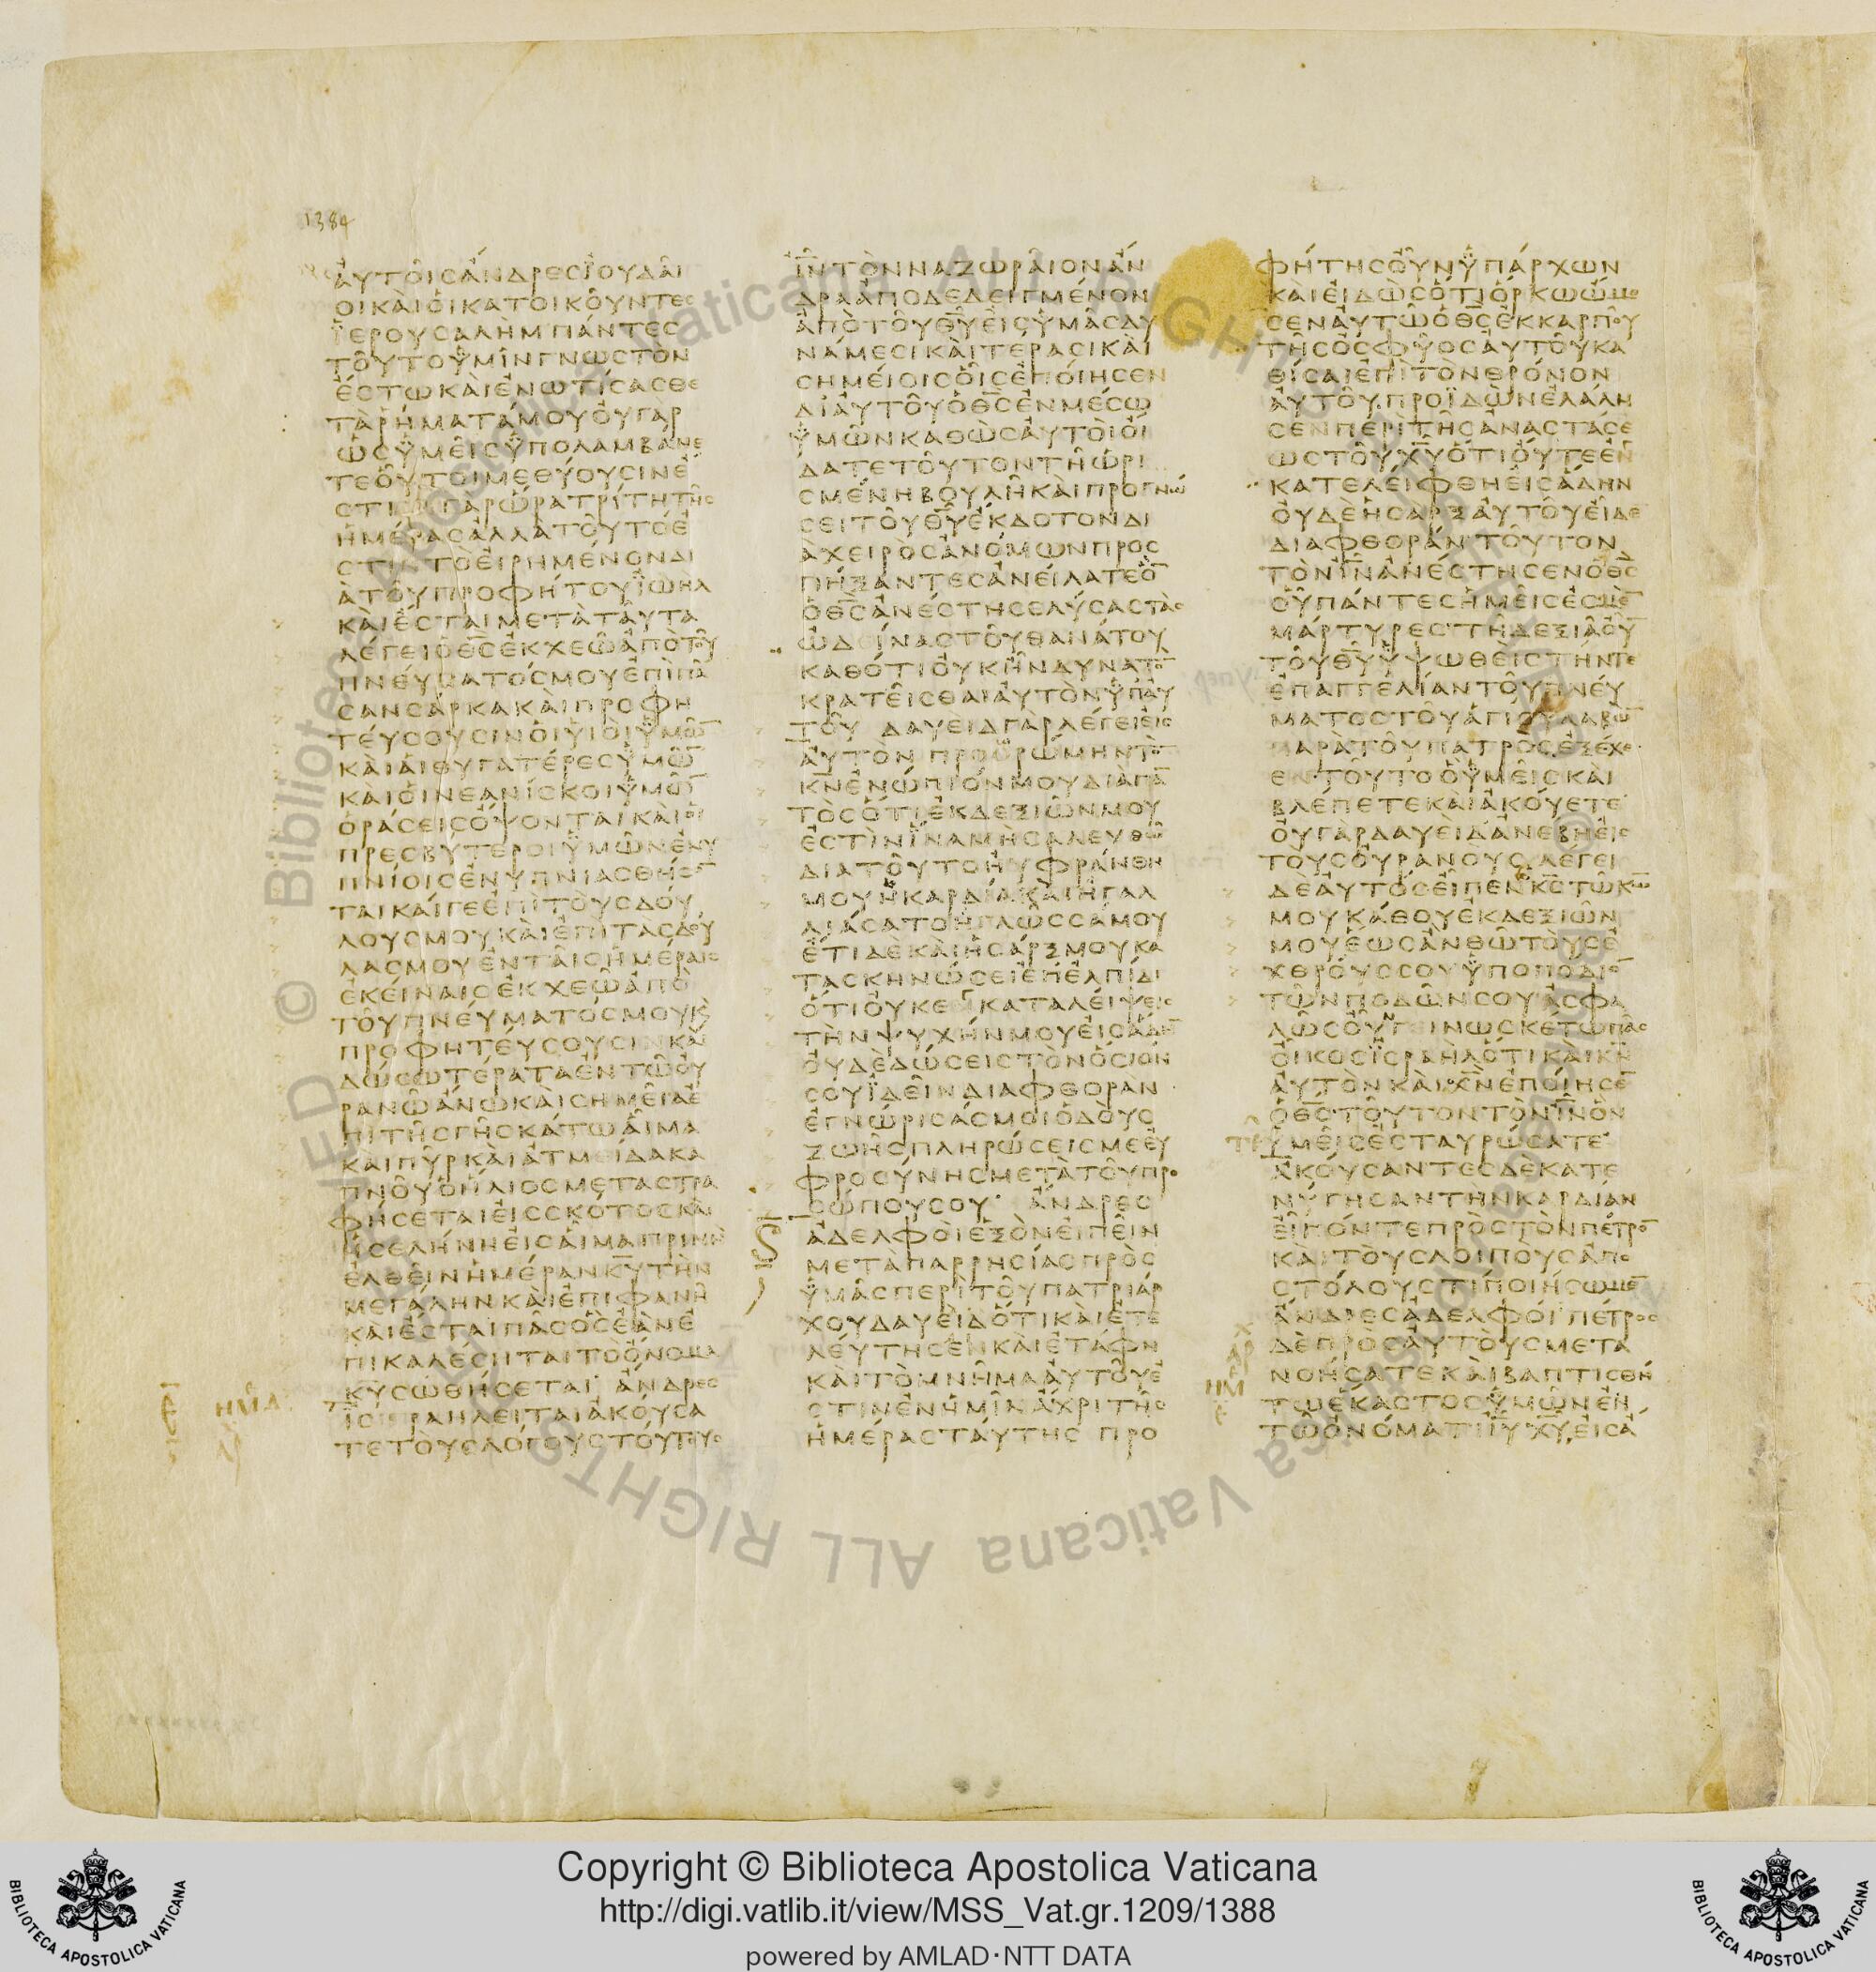 1384
ἀυτοῖσἄνδρεσϊουδᾶι
οικαὶὁικατοικοῦντεσ
ϊερουσαλημπάντεσ
τοῦτοϋμῖνγνωστὸν
ἔστωκαὶἐνωτίσασθε
τὰῥήματάμουὀυγὰρ
ὡσϋμεῖσϋπολαμβάνε
τεοὗτοιμεθύουσινἔ
στιγαρὥρατρίτητῆσ
ἡμέρασἀλλὰτοῦτόἐ
στιτὸἐιρημένονδι
ὰτοῦπροφήτουϊωηλ
καὶἔσταιμετὰταῦτα
λέγειὁθ̅σ̅ἐκχεῶἀπὸτοῦ
πνεύματόσμουἐπὶπᾶ
σανσάρκακαὶπροφη
τεύσουσινὁιϋιὸιϋμῶ̅
καὶἁιθυγατέρεσϋμῶ̅
καιὁινεανίσκοιϋμῶ̅
ὁράσεισὄψονταικαὶὁι
πρεσβυτεροιϋμῶνἐνυ
πνίοισἐνυπνιασθήσο̅
ταικαίγεἐπὶτοὺσδού
λουσμουκαὶἐπὶτὰσδού
λασμουἐνταῖσἡμέραισ
ἐκείναισἐκχεῶἀπὸ
τοῦπνεύματόσμουκ̀
προφητεύσουσινκαὶ
δώσωτέραταἐντῶὀυ
ρανῶἄνωκαὶσημεῖαἐ
πὶτῆσγῆσκάτωᾶἱμα
καὶπῦρκαὶἀτμείδακα
πνοῦὁἥλιοσμεταστρα
φήσεταιἐισσκότοσκαὶ
ἡσελήνηἐισᾶἱμαπρινὴ̀
ἐλθεῖνἡμέρανκ̅υ̅τὴν
μεγάληνκαὶἐπιφανῆ
καὶἔσταιπᾶσὁσἐὰνἐ
πικαλέσηταιτοὄνομα
κ̅υ̅σωθήσεται· ἄνδρεσ
ϊσραηλεῖταιἀκούσα
τετοὺσλόγουστούτουσ
ι̅ν̅τὸνναζωρᾶιονἄν
δραἀποδεδειγμένον
ἀπὸτοῦθ̅υ̅ἐισϋμᾶσδυ
νάμεσικαὶτέρασικαὶ
σημείοισοἷσἐποίησεν
δι᾽ἀυτοῦὁθ̅σ̅ἐνμέσω
ϋμῶνκαθὼσἀυτὸιὀι
δατετοῦτοντῆὡρι
σμένηβουλῆκαὶπρογνώ
σειτοῦθ̅υ̅ἔκδοτονδι
ὰχειρὸσἀνόμωνπροσ
πήξαντεσἀνείλατεὃ̅
ὁθ̅σ̅ἀνέστησελύσαστὰσ
ὠδεῖναστοῦθανάτου
καθότιὀυκῆνδυνατὸ̅
κρατεῖσθαιἀυτὸνϋπ᾽ἀυ
τοῦ δαυεὶδγὰρλέγειἐισ
ἀυτὸν προορώμηντὸ̅
κ̅ν̅ἐνώπιόνμουδιαπα̅
τὸσὅτιἐκδεξιῶνμου
ἐστὶνἵναμὴσαλευθῶ
διατοῦτοηυφράνθη
μουἡκαρδίακαὶἠγαλ
λιάσατοἡγλῶσσάμου
ἔτιδεκαὶἡσάρξμουκα
τασκηνώσειἐπ᾽ἐλπίδι
ὅτιὀυκενκαταλείψεισ
τὴνψυχήνμουἐισἅδη̅
ὀυδὲδώσειστὸνὅσιόν
σουϊδεῖνδιαφθοραν
ἐγνώρισάσμοιὁδοὺσ
ζωῆσπληρώσεισμεἐυ
φροσύνησμετὰτοῦπρο
σώπουσου· ἄνδρεσ
ἀδελφὸιἐξὸνἐιπεῖν
μετὰπαρρησίασπρὸσ
ϋμᾶσπερὶτοῦπατριάρ
χουδαυεὶδὅτικαὶἐτε
λεύτησενκαὶἐτάφη
καὶτὸμνῆμαἀυτοῦἐ
στινἐνἡμῖνἄχριτῆσ
ἡμέρασταύτησ προ
φήτησοὖνϋπάρχων
καὶἐιδὼσὅτιὅρκωὤμο
σεναυτῶὁθ̅σ̅ἐκκαρποῦ
τῆσὀσφύοσἀυτοῦκα
θίσαιἐπὶτὸνθρόνον
ἀυτοῦ.προϊδὼνἐλάλη
σενπερὶτῆσἀναστάσε
ωστοῦχ̅υ̅ὅτιὀύτεἐν
κατελείφθηἐισἅδην
ὀυδὲἡσὰρξἀυτοῦἐῖδε
διαφθοράν·τοῦτον
τὸνι̅ν̅ἀνέστησενὁθ̅σ̅
οὗπάντεσἡμεῖσἐσμὲ̅
μάρτυρεσ·τῆδεξιᾶοὖ̅
τοῦθ̅υ̅ϋψωθεὶστήντε
ἐπαγγελίαντοῦπνεύ
ματοστοῦἁγίουλαβὼ̅
παρὰτοῦπατροσ,ἐξέχε
εντοῦτοὃϋμεῖσκαὶ
βλέπετεκαὶἀκούετε·
ὀυγὰρδαυεὶδἀνέβηἐισ
τοὺσὀυρανοὺσ,λέγει
δεἀυτόσἐῖπενκ̅σ̅τῶκ̅ω̅
μουκάθουἐκδεξιῶν
μουἕωσἂνθῶτοὺσἐ
χθρόυσσουϋποπόδιο̅
τῶνποδῶνσουἀσφα
λῶσοῦνγεινωσκέτωπᾶσ
οἶκοσϊσραὴλὅτικαὶκ̅ν̅
ἀυτὸνκαὶχ̅ν̅ἐποίησε̅
ὁθ̅σ̅·τοῦτοντὸνι̅ν̅ὃν
ϋμεῖσἐσταυρώσατε·
ἀκούσαντεσδὲκατε
νύγησαντὴνκαρδίαν
εἰπόντεπρὸστὸνπέτρο̅
καὶτοὺσλοιποὺσἀπο
στόλουστίποιήσωμε̅
ἄνδρεσἀδελφόι πέτροσ
δὲπροσἀυτοὺσμετα
νοήσατεκαὶβαπτισθή
τωἕκαστοσϋμῶνἐν
τῶὀνόματιι̅υ̅χ̅υ̅,ἐισἄ
Copyright © Biblioteca Apostolica Vaticana
http://digi.vatlib.it/view/MSS_Vat.gr.1209/1388
powered by AMLAD·NTT DATA
BIBLIOTECA APOSTOLICA VATICANA
BIBLIOTECA APOSTOLICA VATICANA